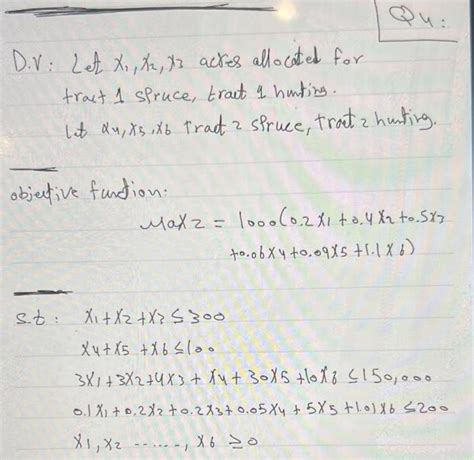 Q4:
D.V: Let x1, x2, x3 acres allocated for
tract 1 spruce, tract 1 hunting.
Let x4, x5, x6 Tract 2 spruce, tract 2 hunting.
objective function:
Max z = 1000(0.2x1 + 0.4x2 + 0.5x3
+0.06x4 + 0.09x5 + 1.1x6)
s.t: x1 + x2 + x3 ≤ 300
x4 + x5 + x6 ≤ 100
3x1 + 3x2 + 4x3 + x4 + 30x5 + 10x6 ≤ 150,000
0.1x1 + 0.2x2 + 0.2x3 + 0.05x4 + 5x5 + 1.01x6 ≤ 200
x1, x2 ------, x6 ≥ 0